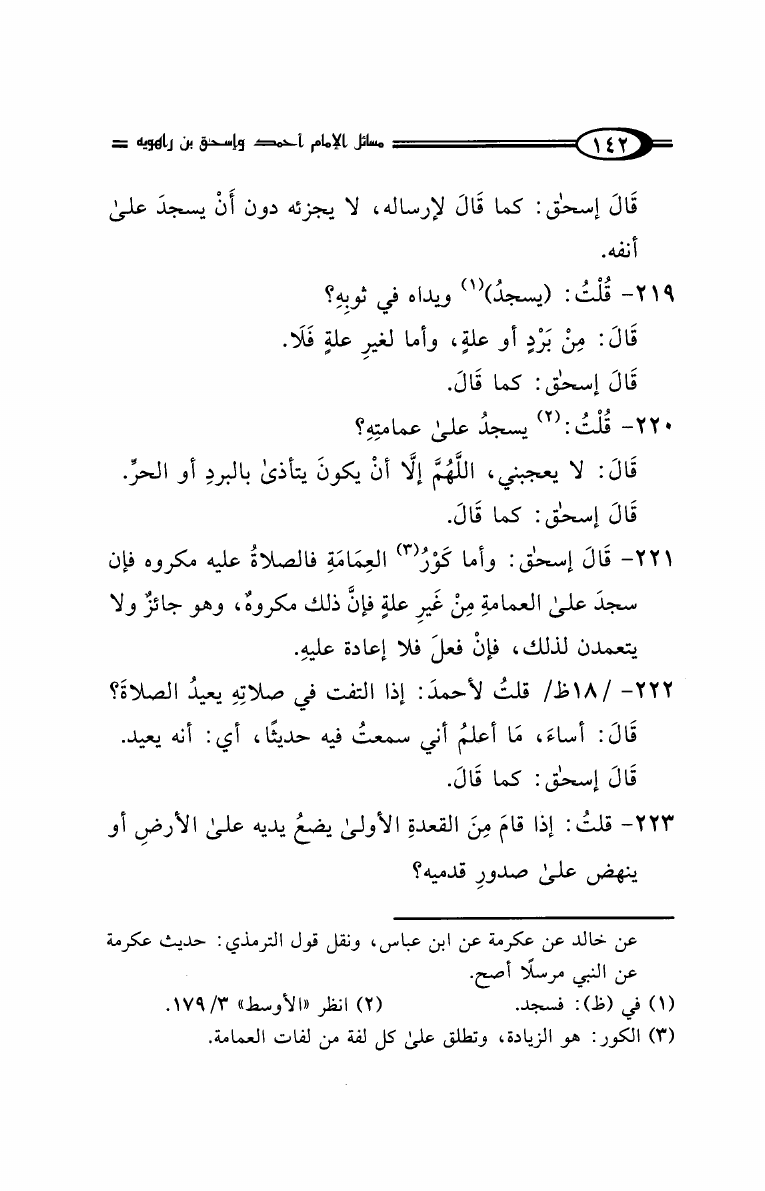 ١٤٢ مسائل الإمام أحمد وإسحق بن راهويه
قَالَ إسحٰق: كما قَالَ لإرساله، لا يجزئه دون أَنْ يسجدَ علىٰ
أنفه.
٢١٩- قُلْتُ: (يسجدُ)(١) ويداه في ثوبِهِ؟
قَالَ: مِنْ بَرْدٍ أو علةٍ، وأما لغيرِ علةٍ فَلَا.
قَالَ إسحٰق: كما قَالَ.
٢٢٠- قُلْتُ:(٢) يسجدُ علىٰ عمامتِهِ؟
قَالَ: لا يعجبني، اللَّهُمَّ إلَّا أنْ يكونَ يتأذىٰ بالبردِ أو الحرِّ.
قَالَ إسحٰق: كما قَالَ.
٢٢١- قَالَ إسحٰق: وأما كَوْرُ(٣) العِمَامَةِ فالصلاةُ عليه مكروه فإن
سجدَ علىٰ العمامةِ مِنْ غَيرِ علةٍ فإنَّ ذلك مكروهٌ، وهو جائزٌ ولا
يتعمدن لذلك، فإنْ فعلَ فلا إعادة عليهِ.
٢٢٢- /١٨ظ/ قلتُ لأحمدَ: إذا التفت في صلاتِهِ يعيدُ الصلاةَ؟
قَالَ: أساءَ، مَا أعلمُ أني سمعتُ فيه حديثًا، أي: أنه يعيد.
قَالَ إسحٰق: كما قَالَ.
٢٢٣- قلتُ: إذا قامَ مِنَ القعدةِ الأولىٰ يضعُ يديه علىٰ الأرضِ أو
ينهض علىٰ صدورِ قدميه؟
عن خالد عن عكرمة عن ابن عباس، ونقل قول الترمذي: حديث عكرمة
عن النبي مرسلًا أصح.
(١) في (ظ): فسجد. (٢) انظر «الأوسط» ٣/ ١٧٩.
(٣) الكور: هو الزيادة، وتطلق علىٰ كل لفة من لفات العمامة.